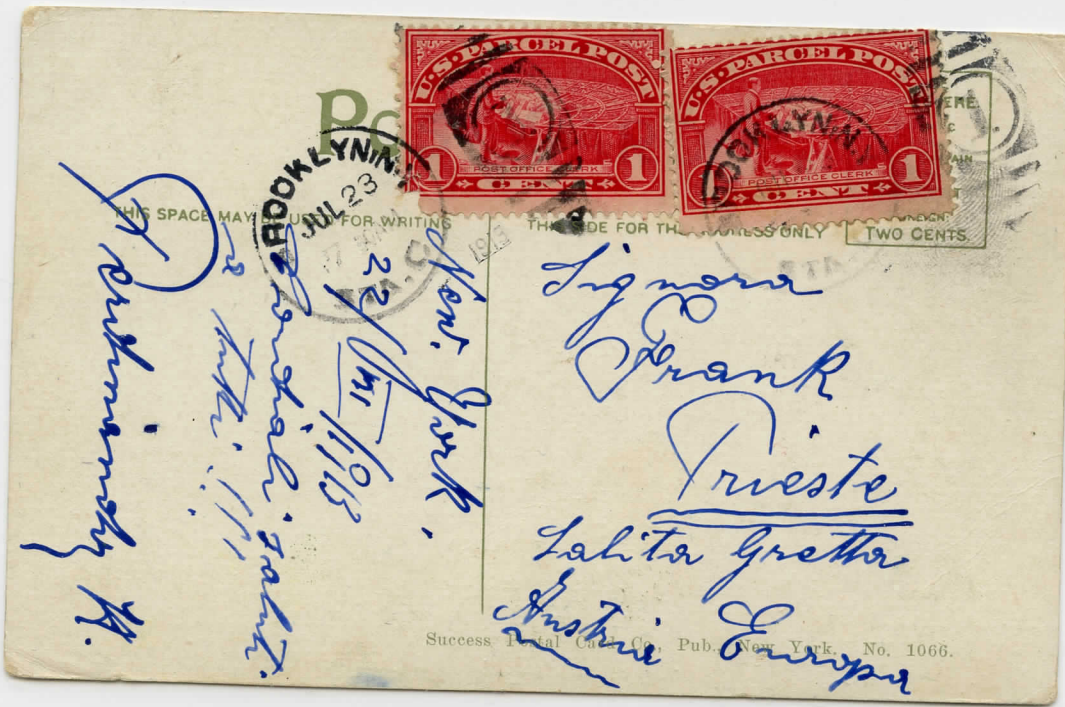 U.S. PARCEL POST
1 POST OFFICE CLERK 1
CENT
U.S. PARCEL POST
1 POST OFFICE CLERK 1
CENT
BROOKLYN, N.Y.
JUL 23
1913
STA. C
THIS SPACE MAY BE USED FOR WRITING
THIS SIDE FOR THE ADDRESS ONLY
TWO CENTS.
New. York.
22/VII/1913
Cordiali saluti
a tutti!!!
Signora
Frank
Trieste
Salita Gretta
Austria Europa
Success Postal Card Co., Pub., New York, No. 1066.